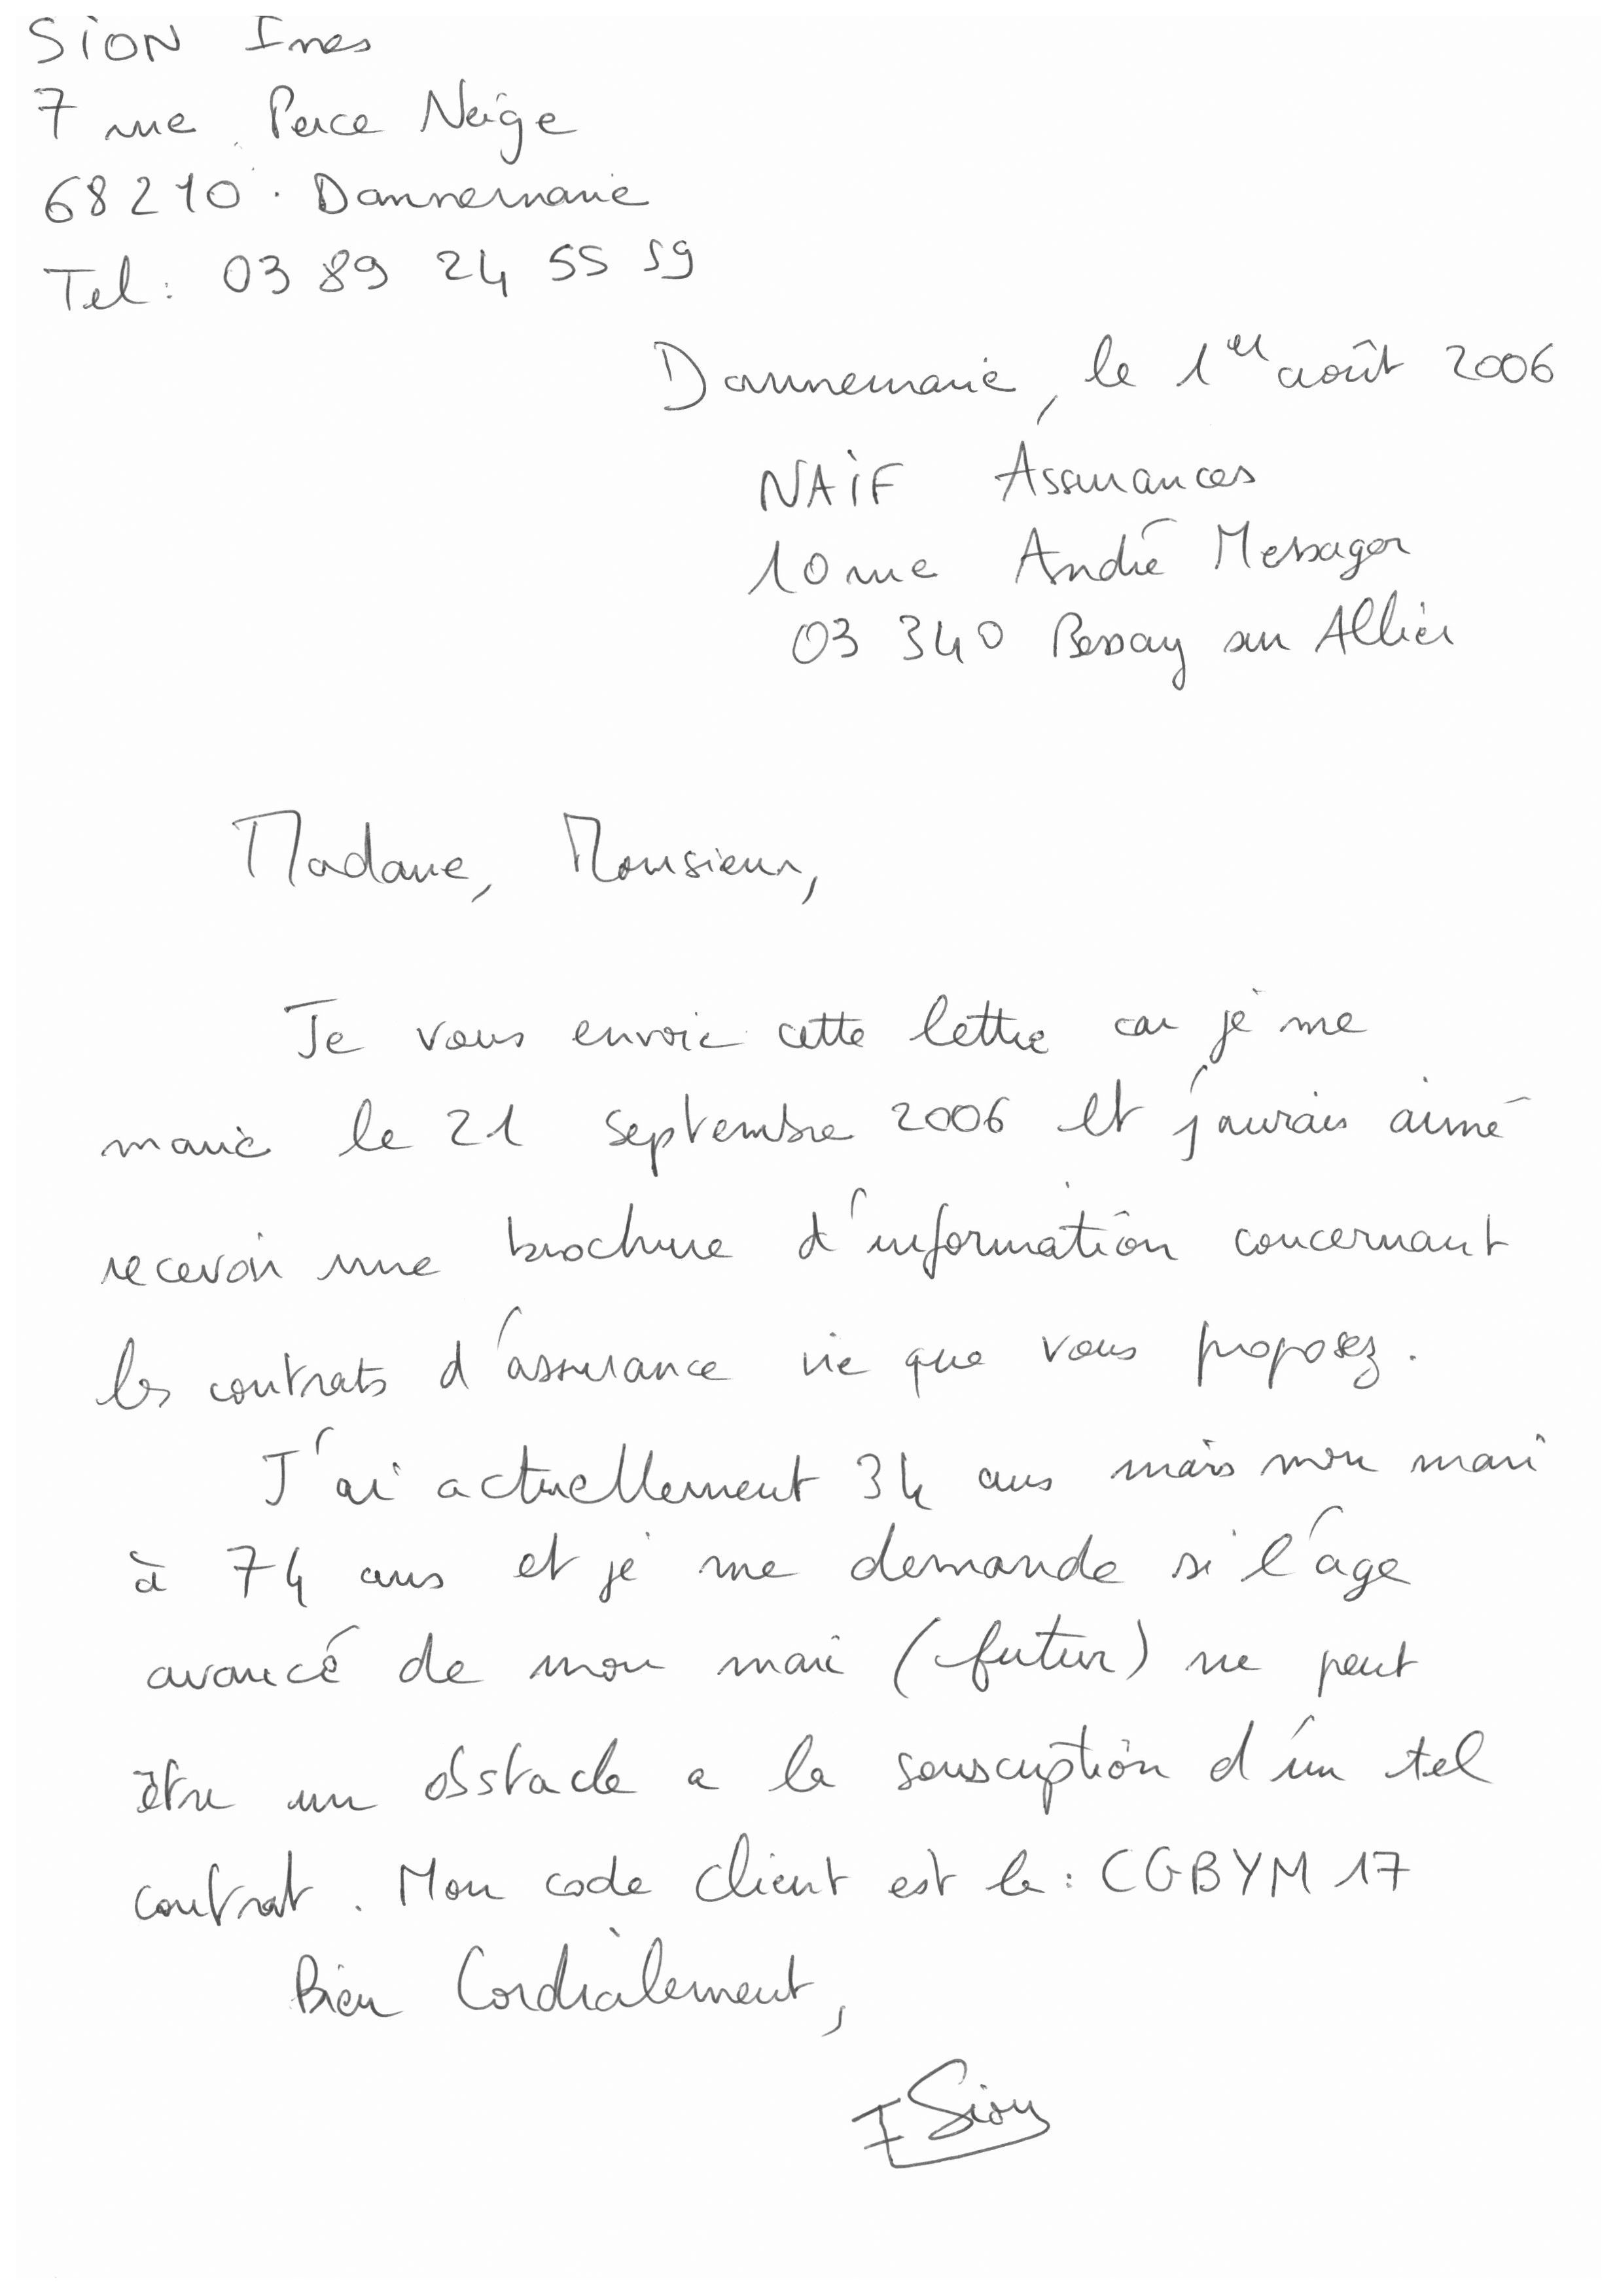 SION Ines
7 rue Perce Neige
68210 Dannemarie
Tel : 03 89 24 55 59
Dannemarie, le 1er août 2006
NAIF Assurances
10 rue André Messager
03 340 Bessay sur Allier
Madame, Monsieur,
Je vous envoie cette lettre car je me
marie le 21 septembre 2006 et j'aurais aimé
recevoir une brochure d'information concernant
les contrats d'assurance vie que vous proposez.
J'ai actuellement 34 ans mais mon mari
à 74 ans et je me demande si l'age
avancé de mon mari (futur) ne peut
être un obstacle a la souscription d'un tel
contrat. Mon code client est le : CGBYM17
Bien Cordialement,
I Sion